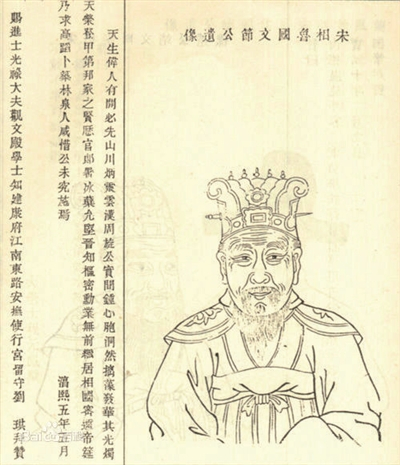 宋相魯國文節公遺像
天生偉人有開必先山川炳靈雲漢周旋公實間鍾心胞洞然摛藻發華其光燭
天榮登甲第邦家之賢歷官郎署冰蘗堅晉知樞密勳業無前居相國帝筵
乃求高蹈卜築林泉人咸惜公未究施焉 淳熙五年五月
賜進士光祿大夫觀文殿學士知建康府江南東路安撫使行宮留守劉 珙拜贊
Baidu百科